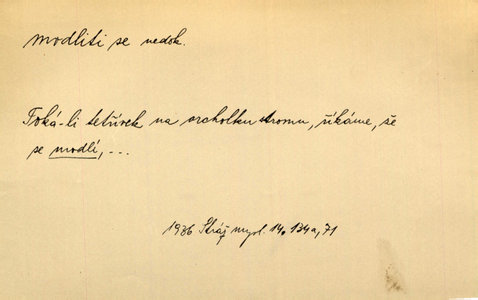 modliti se nedok.
Toká-li tetřívek na vrcholku stromu, říkáme, že
se modlí, ...
1936 Stráž mysl. 14. 134a, 71